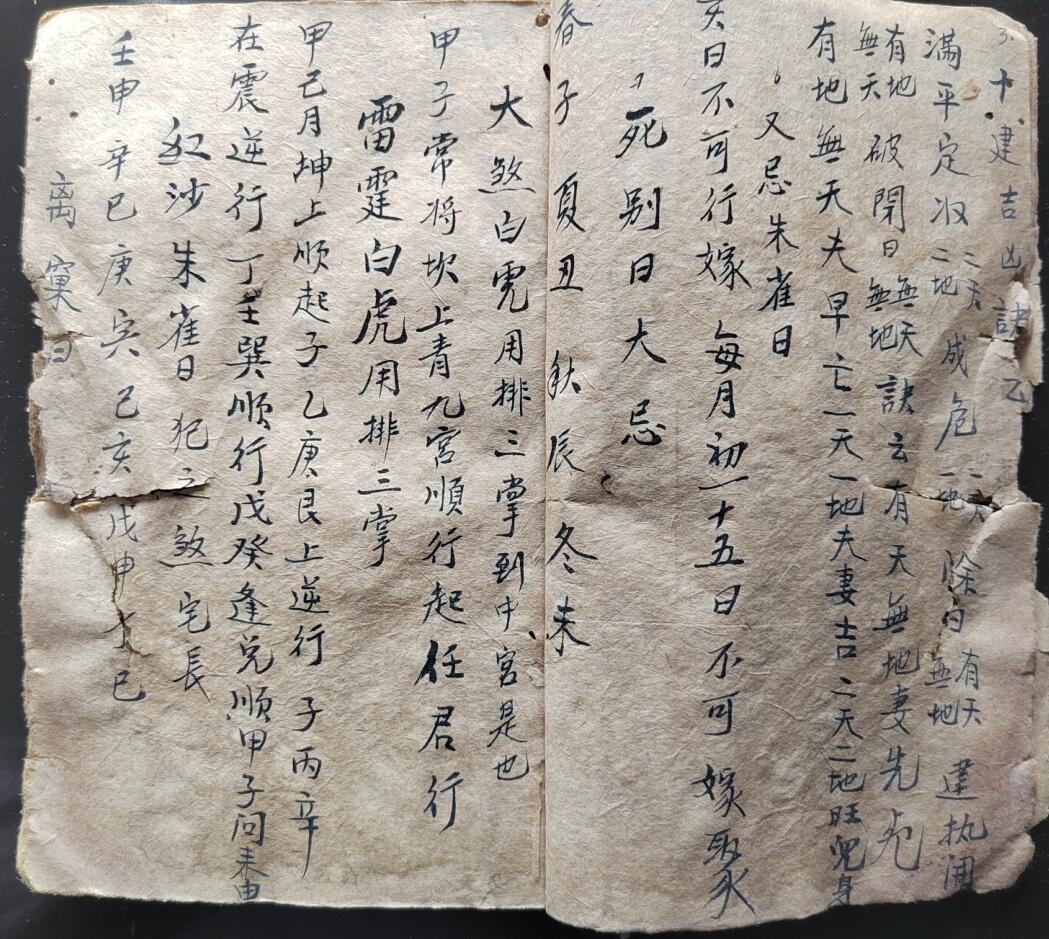 十建吉凶訣乙
滿平定收二天二地成危一天一地除日有天無地建执閉
有地無天破開日無天無地訣云有天無地妻先亡
有地無天夫早亡一天一地夫妻吉二天二地旺児身
又忌朱雀日
亥日不可行嫁每月初一十五日不可嫁娶
死别日大忌
春子夏丑秋辰冬未
大煞白虎用排三掌到中宮是也
甲子常将坎上青九宮順行起任君行
雷霆白虎用排三掌
甲己月坤上順起子乙庚艮上逆行子丙辛
在震逆行丁壬巽順行戊癸逢兌順甲子问来由
紅沙朱雀日犯之煞宅長
壬申辛巳庚寅己亥戊申丁巳
离窠日